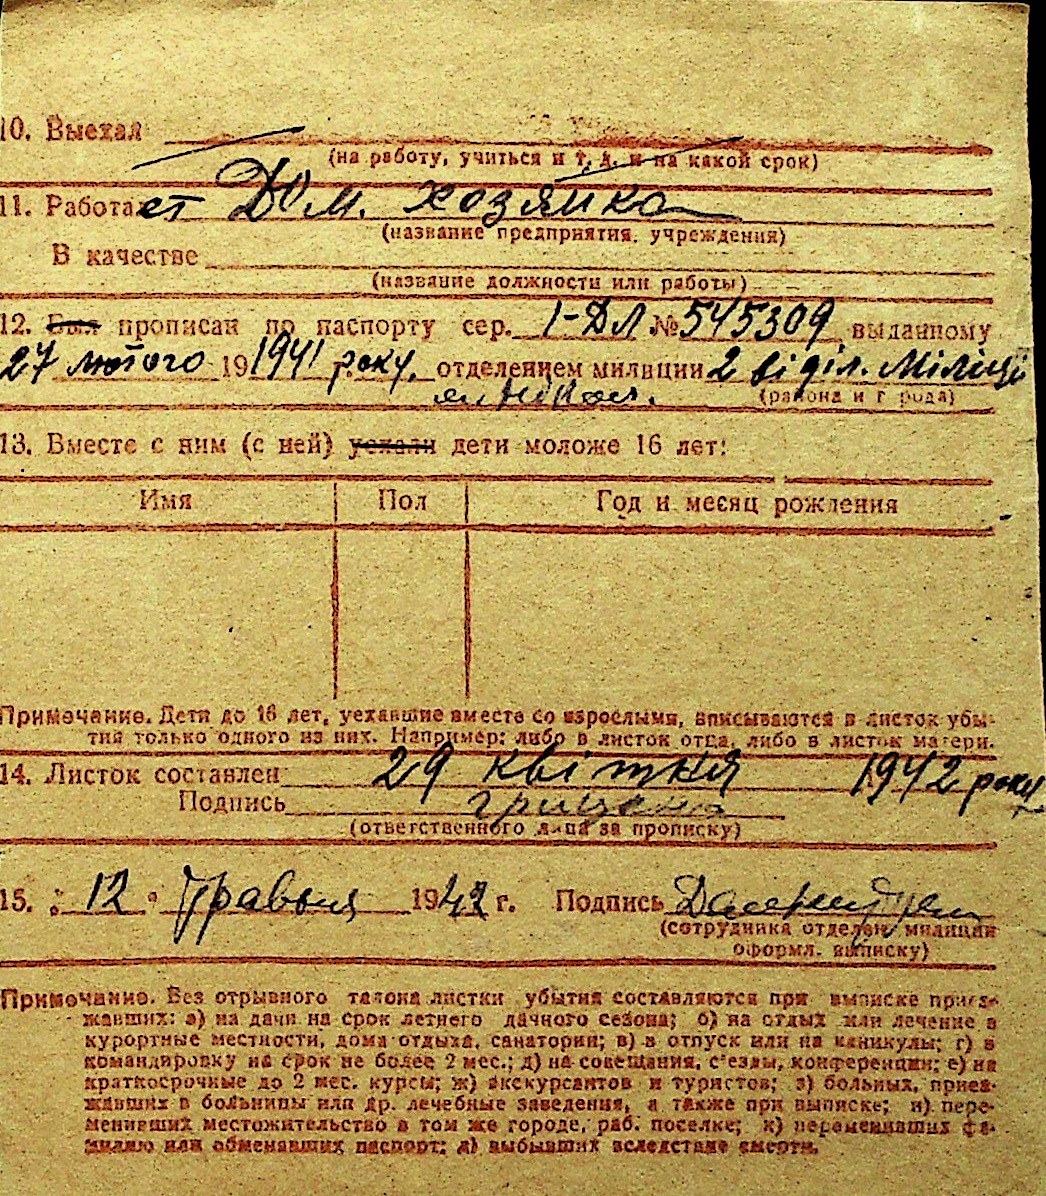 10. Выехал
(на работу, учиться и т. д. и на какой срок)
11. Работает Дом. хозяйка
(название предприятия, учреждения)
В качестве
(название должности или работы)
12. Был прописан по паспорту сер. I-ДЛ № 545309 выданному
27 лютого 19 1941 року, отделением милиции 2 відділ. Міліції
(района и города)
13. Вместе с ним (с ней) уехали дети моложе 16 лет:
Имя Пол Год и месяц рождения
Примечание. Дети до 16 лет, уехавшие вместе со взрослыми, вписываются в листок убы-
тия только одного из них. Например: либо в листок отца, либо в листок матери.
14. Листок составлен 29 квітня 1942 року
Подпись
(ответственного лица за прописку)
15. „ 12 " Травня 1942 г. Подпись
(сотрудника отделен. милиции
оформл. выписку)
Примечание. Без отрывного талона листки убытия составляются при выписке приез-
жавших: а) на дачи на срок летнего дачного сезона; б) на отдых или лечение в
курортные местности, дома отдыха, санатории; в) в отпуск или на каникулы; г) в
командировку на срок не более 2 мес.; д) на совещания, с'езды, конференции; е) на
краткосрочные до 2 мес. курсы; ж) экскурсантов и туристов; з) больных, приез-
жавших в больницы или др. лечебные заведения, а также при выписке; и) пере-
менивших местожительство в том же городе, раб. поселке; к) переменивших фа-
милию или обменавших паспорт; л) выбывших вследствие смерти.